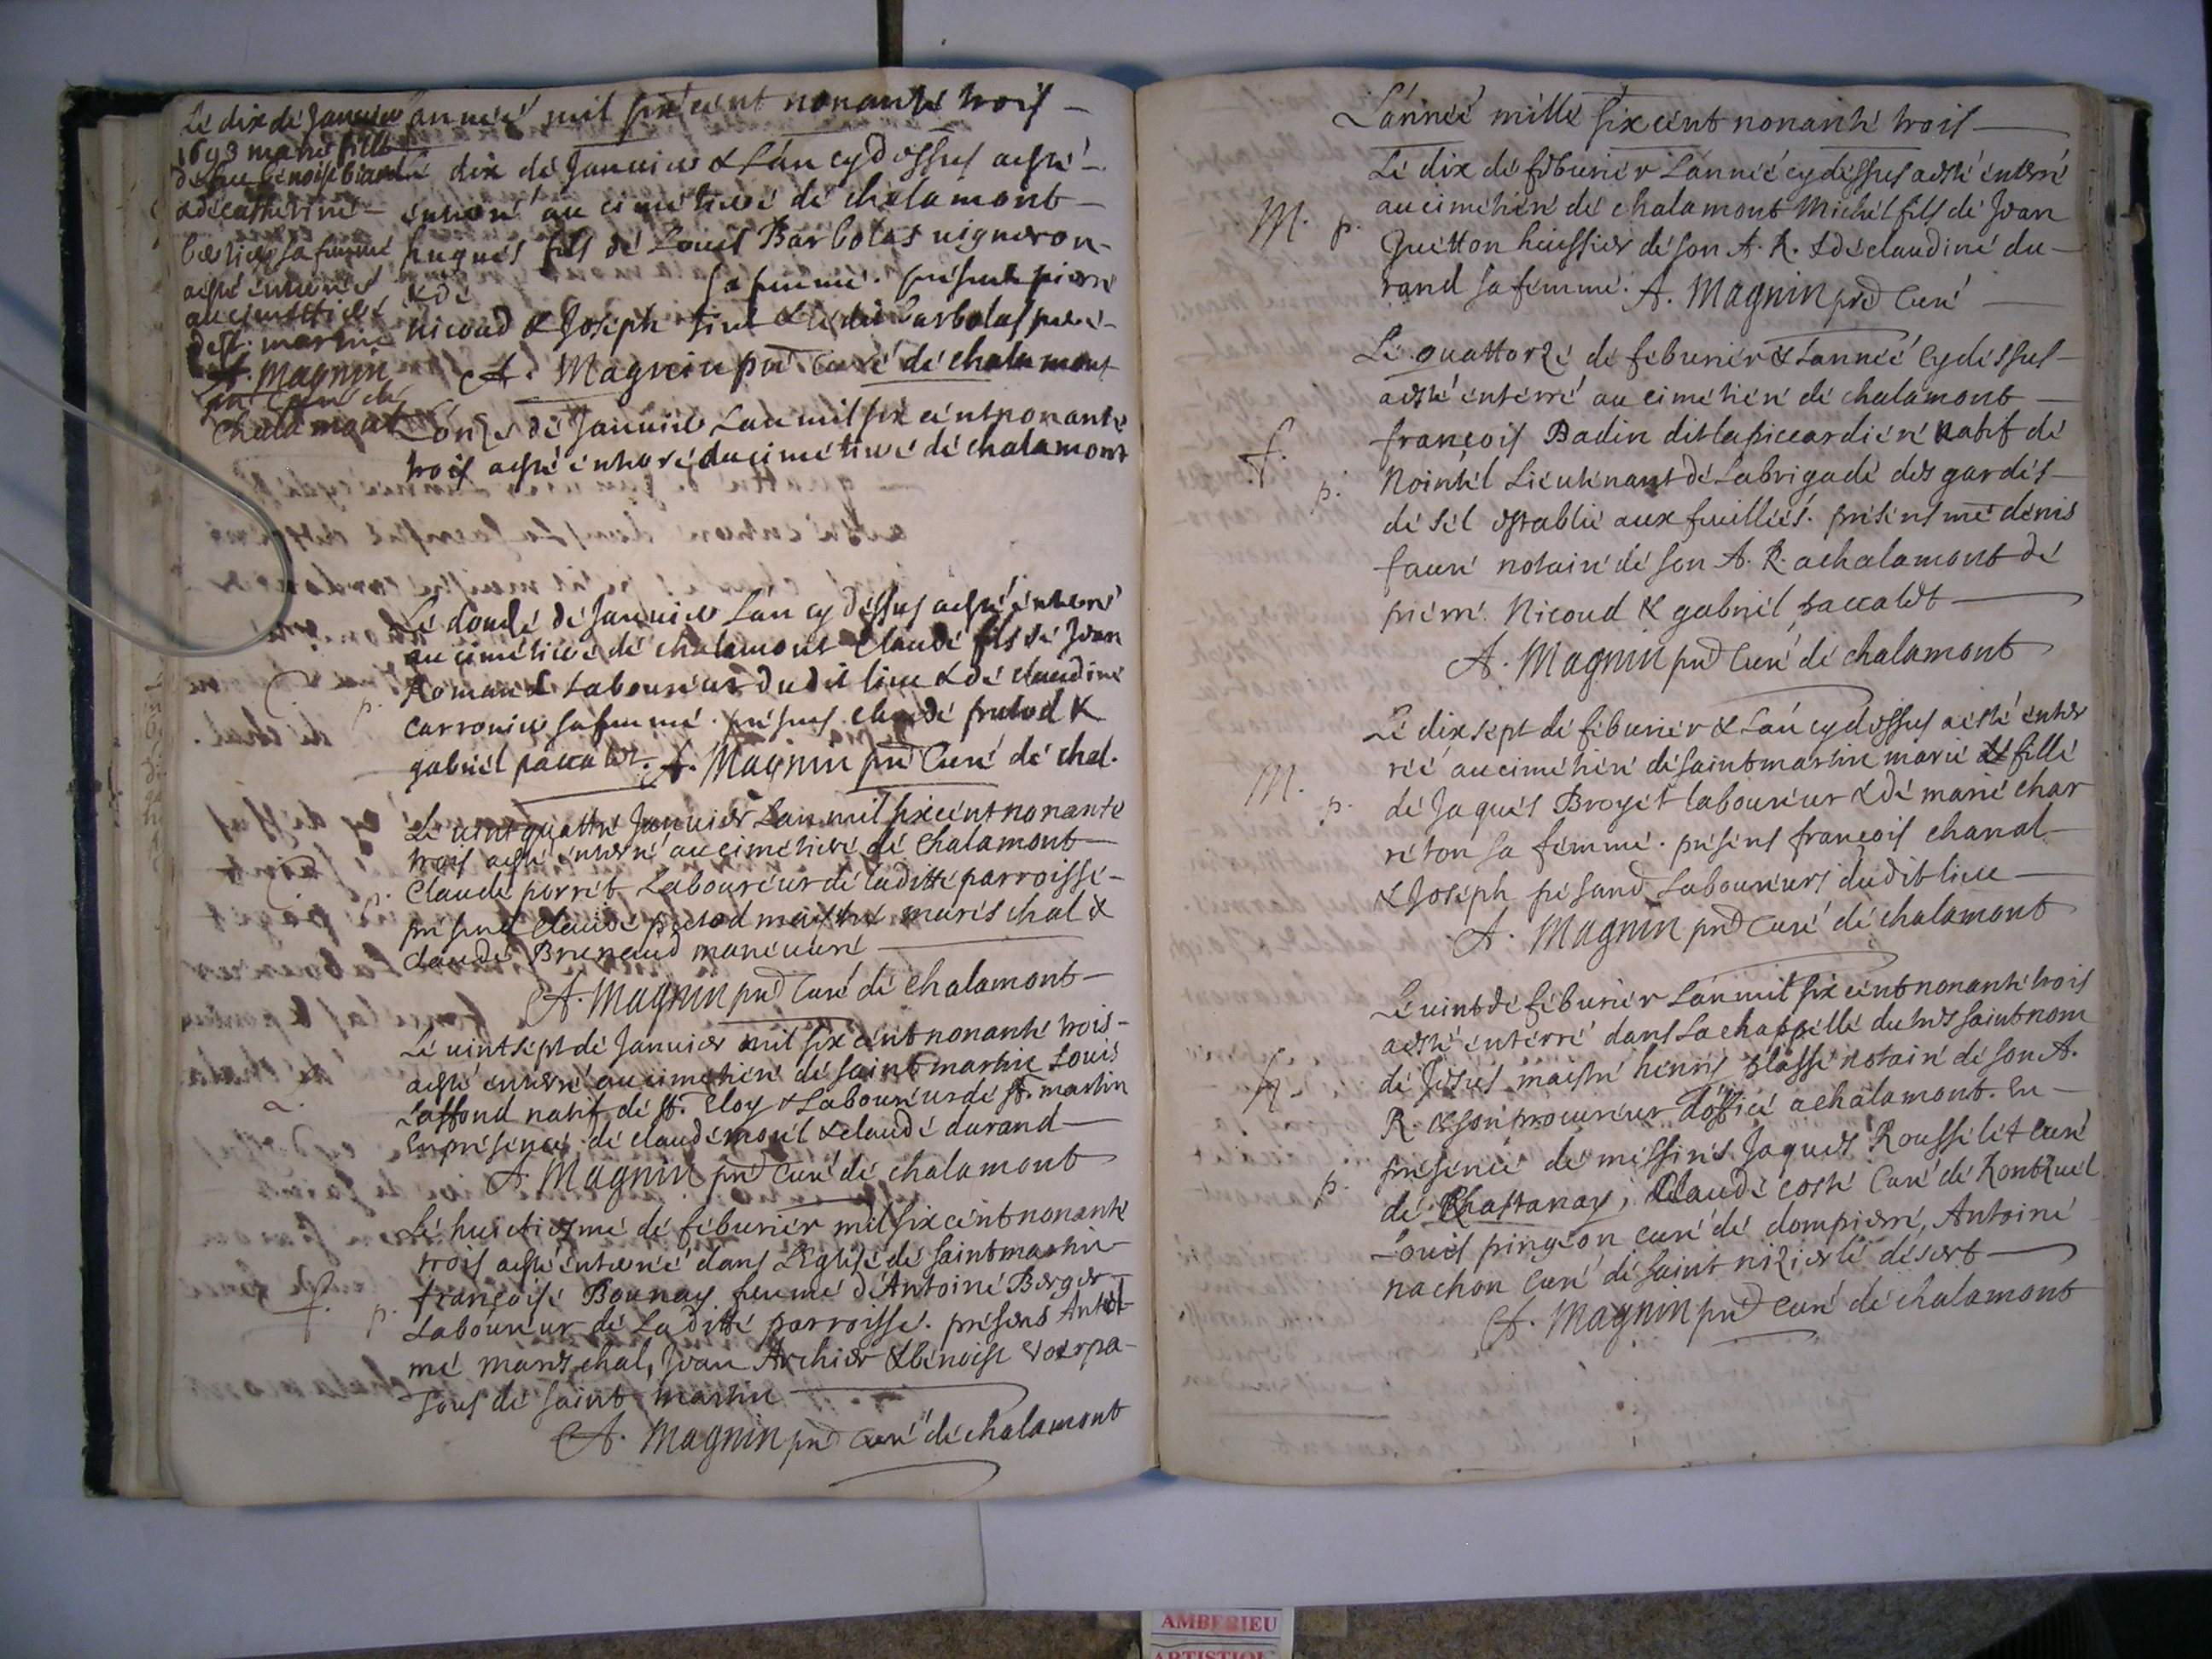 Le dix de Janvier
1693 marie fille
de feu benoist
& de catherine
sa femme
a esté enterrée
au cimettiere
de st. martin
A. Magnin
pre Curé de
chalamont
année mil six cent nonante trois
dix de Januier & L'an cy dessus a esté
enterré au cimetiere de chalamont
hugues fils de Louis Barbolas uigneron
& de sa femme. present pierre
nicoud & Joseph & ledit barbolas pere
A. Magnin pre Curé de chalamont
L'onze de Januier L'an mil six cent nonante
trois a esté enterré au cimetiere de chalamont
Le douze de Januier L'an cy dessus a esté enterré
au cimetiere de chalamont Claude fils de Jean
Roman Laboureur dudit lieu & de claudine
carronier sa femme. presens claude &
gabriel paccalet. A. Magnin pre Curé de chal.
p.
Le uint quattre Januier L'an mil six cent nonante
trois a esté enterré au cimetiere de Chalamont
Claude perret Laboureur de laditte parroisse
p.
present claude maistre mareschal &
claude Brunaud maneuure
A. Magnin pre Curé de Chalamont
Le uint sept de Januier mil six cent nonante trois
a esté enterré au cimetiere de saint martin Louis
Laffond natif de st. Eloy & Laboureur de st. martin
En presence de claude morel & claude durand
A. Magnin pre Curé de chalamont
Le huictiesme de feburier mil six cent nonante
trois a esté enterré dans L'Eglise de saint martin
f. p. françoise Bounay femme d'Antoine Berger
Laboureur de La ditte parroisse. presens Antel
me mareschal, Jean Archier & benoist
de saint martin
A. Magnin pre Curé de chalamont
L'année mille six cent nonante trois
Le dix de feburier L'année cy dessus a esté enterré
M. p. au cimetiere de chalamont Michel fils de Jean
Guetton huissier de son A. R. & de claudine du
rand sa femme. A. Magnin pre Curé
Le quattorze de feburier & L'année cy dessus
a esté enterré au cimetiere de chalamont
f. françois Badin dit lapiccardiere natif de
p. Nointel Lieutenant de La brigade des gardes
de sel establie aux fuilliés. presens me denis
faure notaire de son A. R. a chalamont de
pierre Nicoud & gabriel paccalet
A. Magnin pre Curé de chalamont
Le dix sept de feburier & L'an cy dessus a esté enter
rée au cimetiere de saint martin marie fille
M. p. de Jaques Broyet laboureur & de marie char
reton sa femme. presens françois chanal
& Joseph pesand Laboureurs dudit lieu
A. Magnin pre Curé de chalamont
Le uint de feburier L'an mil six cent nonante trois
a esté enterré dans La chappelle du tres saint nom
h. de Jesus maistre henry blasse notaire de son A.
R. & son procureur d'office a chalamont. En
p. presence de messires Jaques Rousselet curé
de Chastanay, Claude coste Curé de Ronzuel
Louis pingeon curé de dompierre, Antoine
nachon Curé de saint nizier le desert
A. Magnin pre Curé de chalamont
AMBERIEU